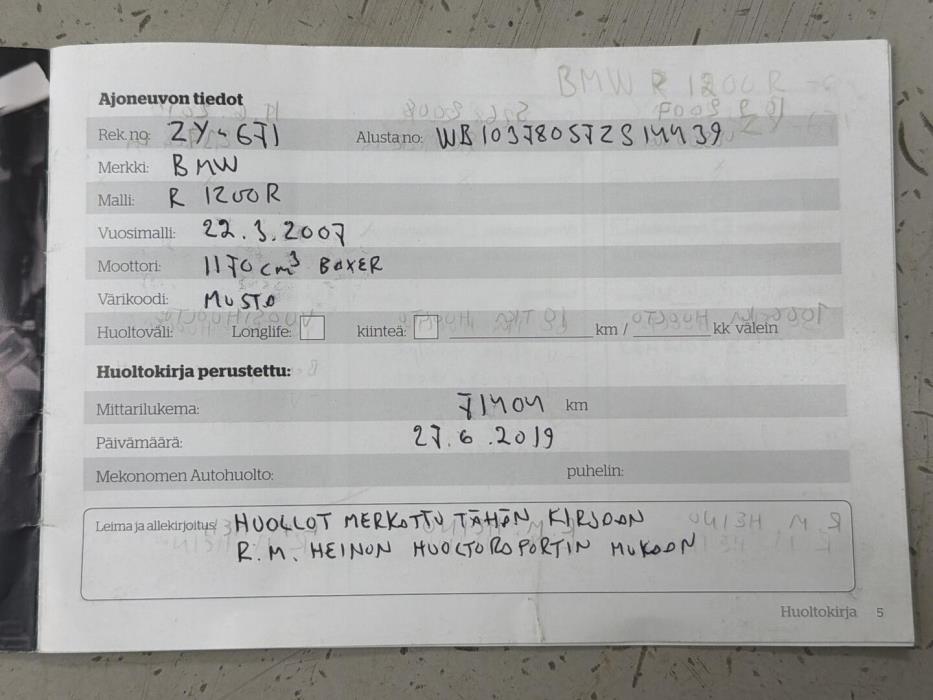 BMW R 1200 R
Ajoneuvon tiedot
Rek.no: ZY-671 Alusta no: WB10378057ZS14439
Merkki: BMW
Malli: R 1200R
Vuosimalli: 22.3.2007
Moottori: 1170 cm³ BOXER
Värikoodi: MUSTA
Huoltoväli: Longlife: kiinteä: km / kk välein
Huoltokirja perustettu:
Mittarilukema: 71404 km
Päivämäärä: 27.6.2019
Mekonomen Autohuolto: puhelin:
Leima ja allekirjoitus: HUOLLOT MERKATTU TÄHÄN KIRJAAN
R.M. HEINON HUOLTORAPORTIN MUKAAN
Huoltokirja 5